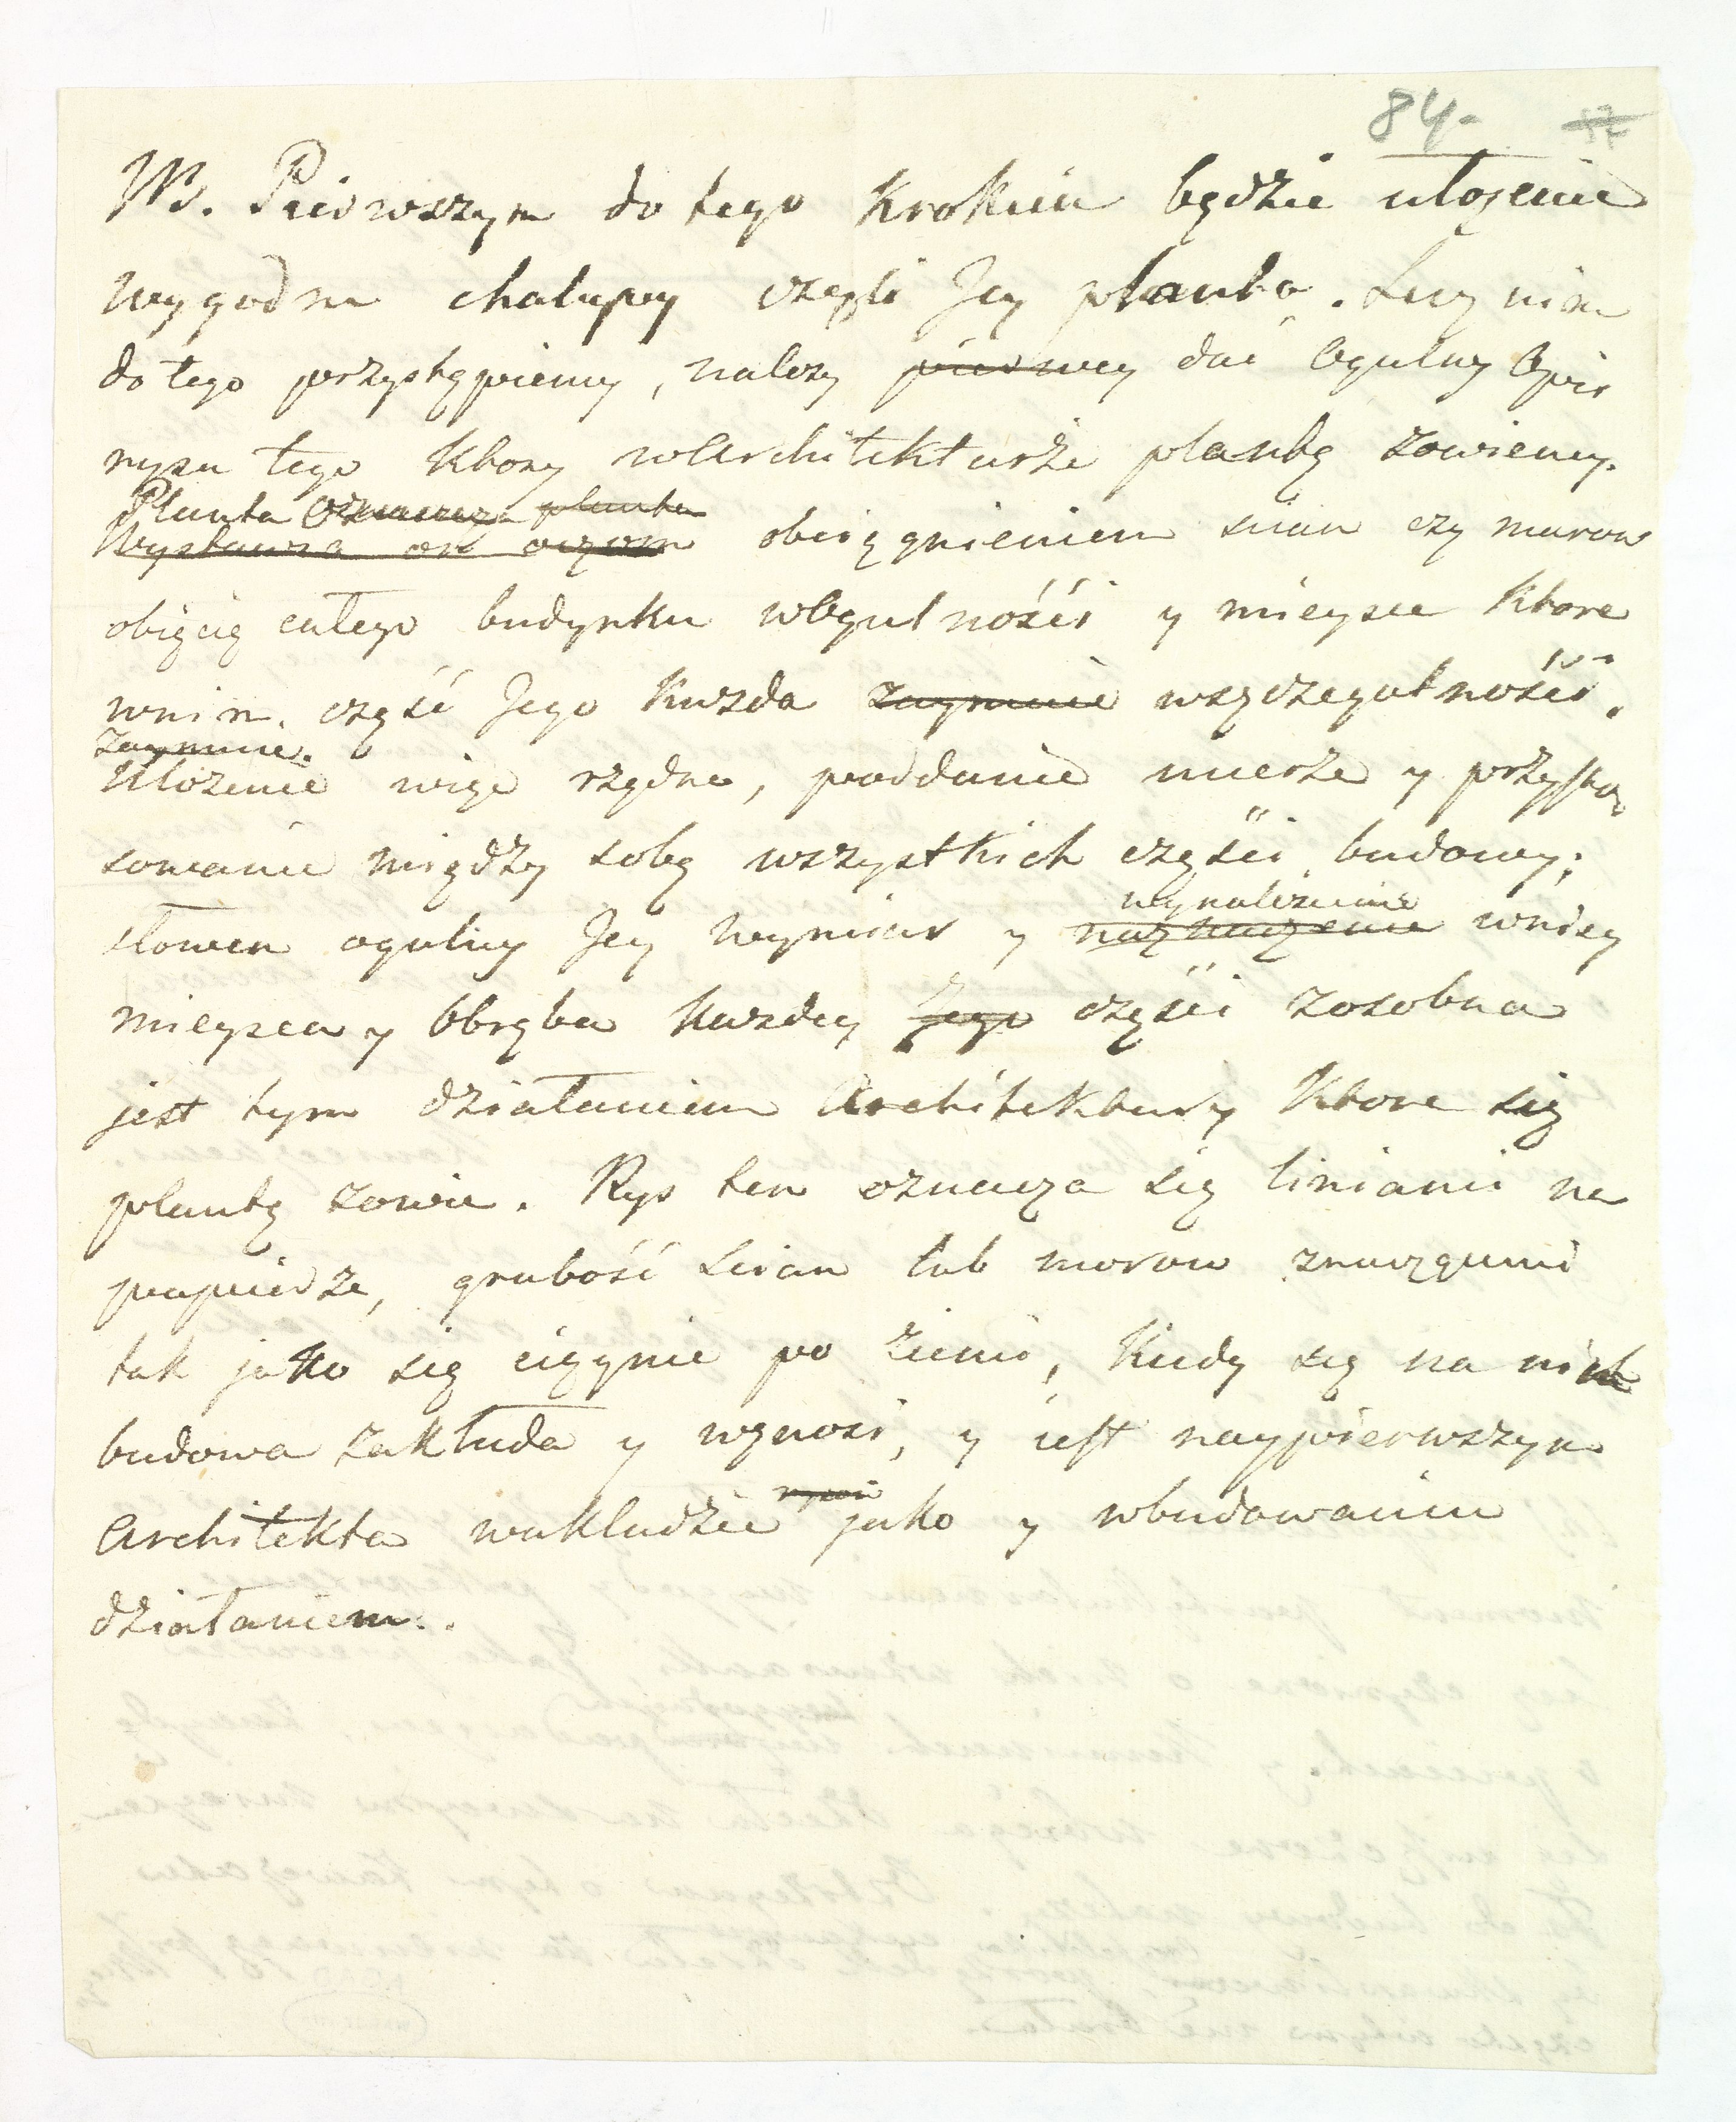 84. 57
W. Pierwszym do tego Krokiem będzie ułożenie
wygodne chałupy czyli Jey planta. Lecz nim
do tego przystępiemy, nalezy pierwey dać Ogulny Opis
rysu tego Ktory w Architekturże plantą zowiemy.
Planta Oznacza planta
Wystawia obciągnieniem scian czy murow
obięcię całego budynku wOgulnośśi y mieysce Ktore
wnim. część Jego Kazda zaymuie wszczegulnośśi.
zaymuie.
Ułożenie więc rządne, poddanie mierze y przysto-
sowanie między sobą wszystkich częśśi budowy;
słowem ogulny Jey wymiar y
wynaleźienie
naznaczenie wniey
mieysca y Obrębu Kazdey Jego częśśi zosobna
jest tym działaniem Architektury Ktore się
plantą zowie. Rys ten oznacza się liniami na
papierże, grubość scian lub murow znaczącemi
tak jako się ciągnie po Ziemi, Kiedy się na nich
budowa zakłada y wznosi, y iest naypierwszym
Architekta wukładzie jako y wbudowaniu
działaniem.